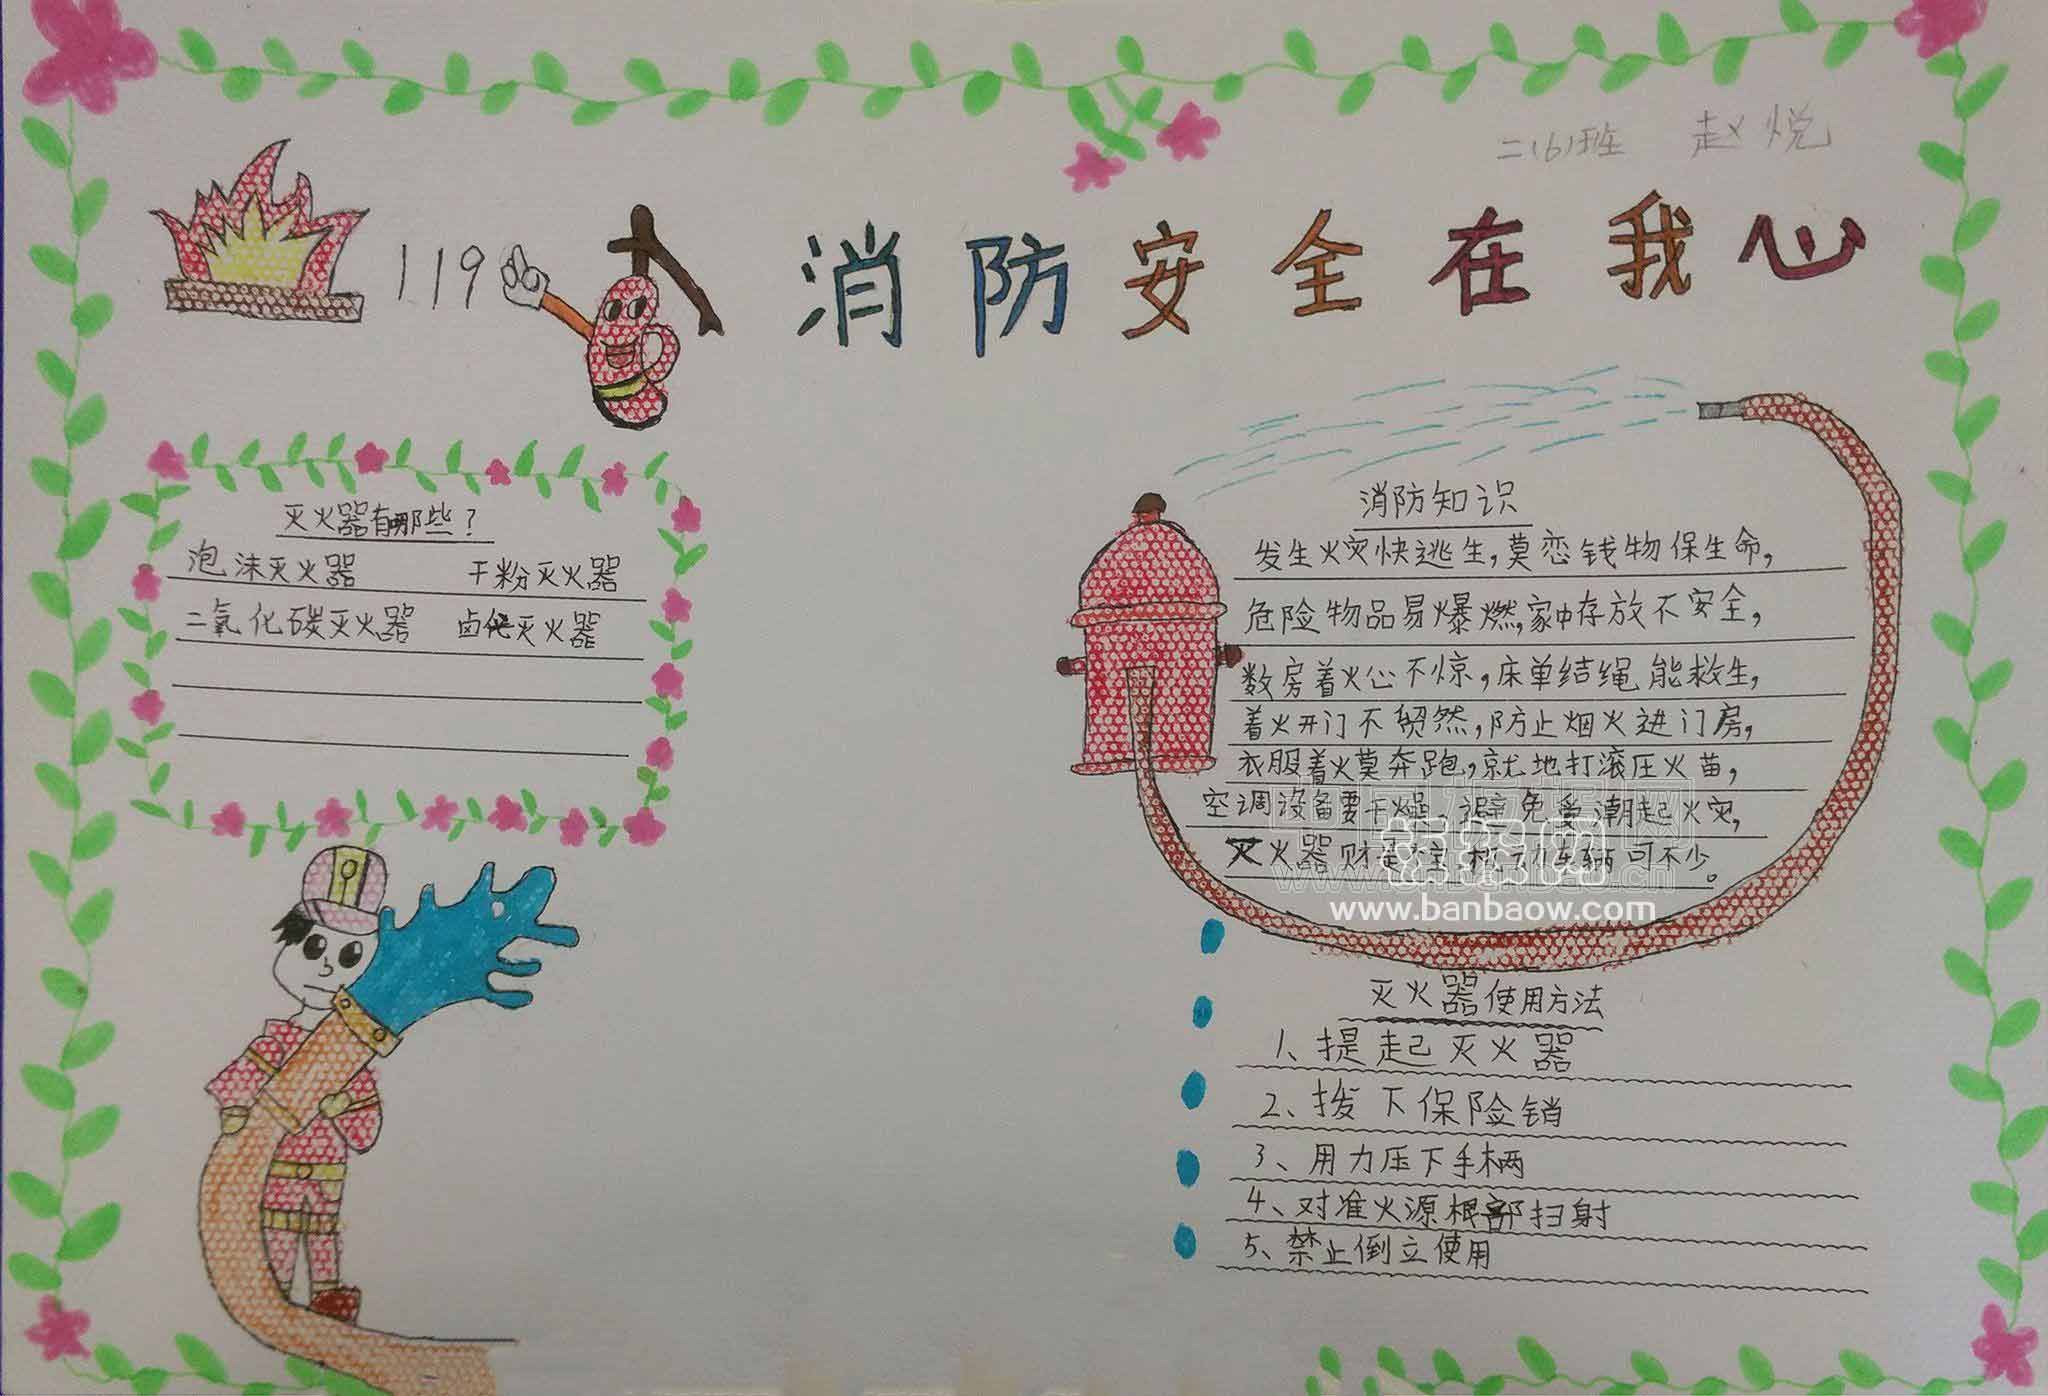 二(6)班 赵悦
119
消防安全在我心
灭火器有哪些?
泡沫灭火器 干粉灭火器
二氧化碳灭火器 卤代灭火器
消防知识
发生火灾快逃生,莫恋钱物保生命,
危险物品易爆燃,家中存放不安全,
数房着火心不惊,床单结绳能救生,
着火开门不贸然,防止烟火进门房,
衣服着火莫奔跑,就地打滚压火苗,
空调设备要干燥,避免受潮起火灾,
灭火器财 车辆可不少。
www.banbaow.com
灭火器使用方法
1、提起灭火器
2、拨下保险销
3、用力压下手柄
4、对准火源根部扫射
5、禁止倒立使用